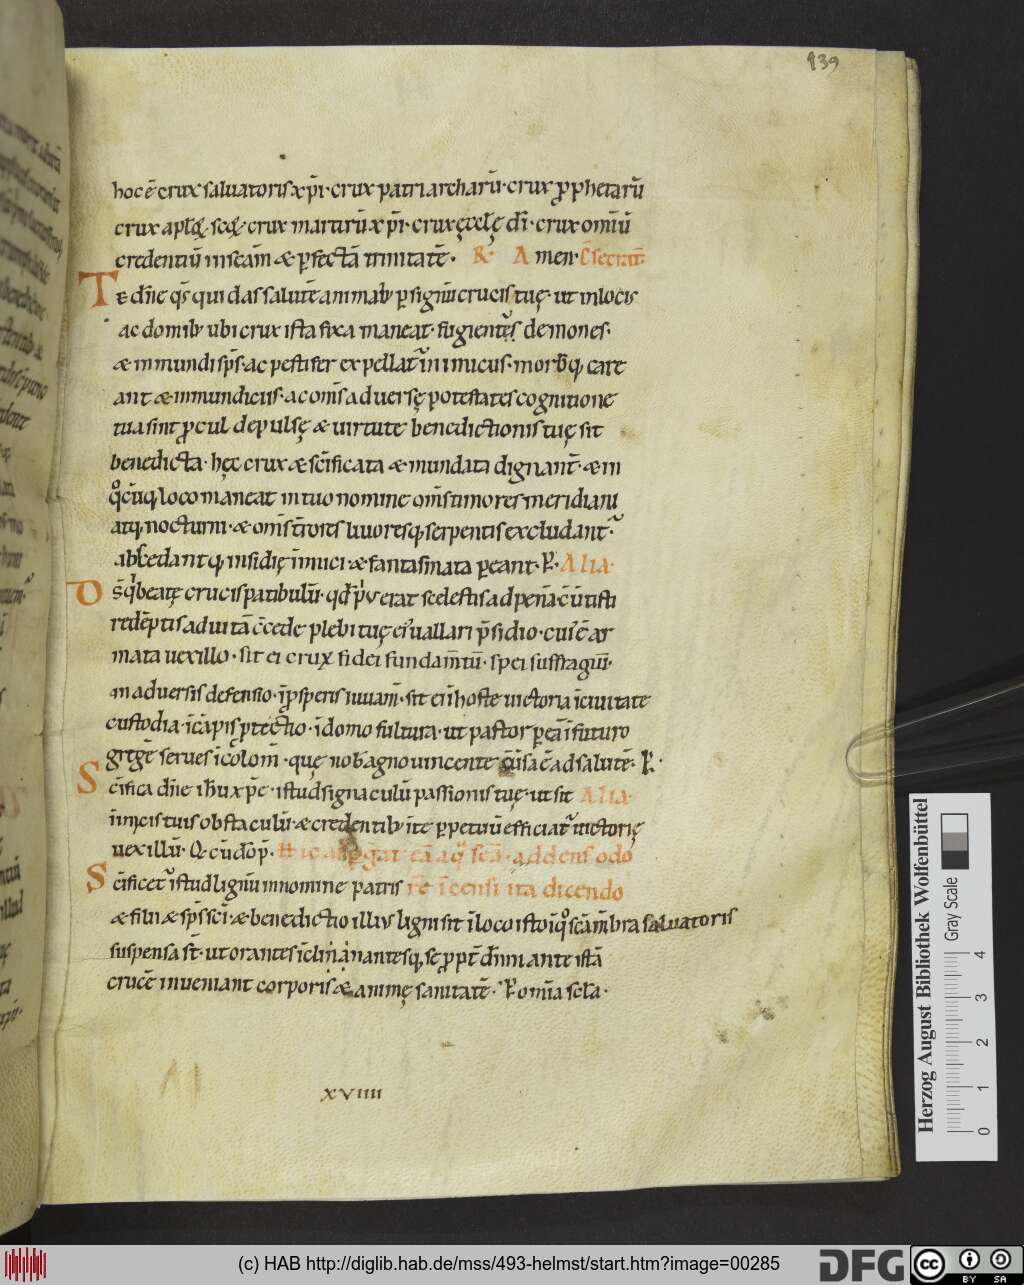 139
hoc ē crux saluatoris xp̄i · crux patriarcharū · crux ꝓphetarū
crux scōꝝ · crux martirū xp̄i · crux ęcclę dī · crux omiū
credentiū in æ ꝑfectā trinitatē · R · Amen
Te dn̄e qs̄ qui das salutē animab; ꝑ signū crucis tuę · ut in locis
ac domib; ubi crux ista fixa maneat · fugientes demones ·
æ inmundi sps̄ · ac pestifer expellat̄ inimicus · morb;q; care
ant æ inmundiciis · ac om̄s aduersę potestates cognitione
tua sint ꝓcul depulsę æ uirtute benedictionis tuę sit
benedicta · hęc crux æ scīficata æ mundata dignant̄ · æ in
q̊cūq; loco maneat in tuo nomine om̄s timores meridiani
atq; nocturni · æ om̄s t̄rores liuoresq; serpentis excludant̄ ·
abscedantq; insidię inīmici · æ fantasmata ꝑeant · P · Alia ·
Ds̄ q beatę crucis patibulū · qd p̓ erat scelestis ad penā cūtisti
redēptis ad uitā c̄cede plebi tuę ei᷒ uallari p̄sidio · cui᷒ ē ar
mata uexillo · sit ei crux fidei fundam̄tū · spei suffragiū ·
in aduersis defensio · ī ꝓsperis iuuam̄ · sit ei ī hoste uictoria ī ciuitate
custodia · ī cāpis ꝓtectio · ī domo fultura · ut pastor ꝑ eā ī futuro
gregē serues īcolom̄ · que nob agno uincente ūsa ē ad salutē · P ·
Scīfica dn̄e ihū xp̄e · istud signaculū passionis tuę · ut sit Alia ·
inīmicis tuis obstaculū · æ credentib; ī te ꝑpetuū efficiat̄ uictorię
uexillū · Q · cū dō p̄ ·
Scīficet̄ istud lignū in nomine patris ī censi ita dicendo
æ filii æ sps̄ scī · æ benedictio illi᷒ ligni sit ī loco isto ī q̊ scā mēbra saluatoris
suspensa st̄ · ut orantes īclinantesq; se ꝓpt̄ dn̄m ante istā
crucē inueniant corporis æ animę sanitatē · P omīa scl̄a ·
XVIIII
Herzog August Bibliothek Wolfenbüttel
Gray Scale
0 1 2 3 4
(c) HAB http://diglib.hab.de/mss/493-helmst/start.htm?image=00285
DFG
cc BY SA